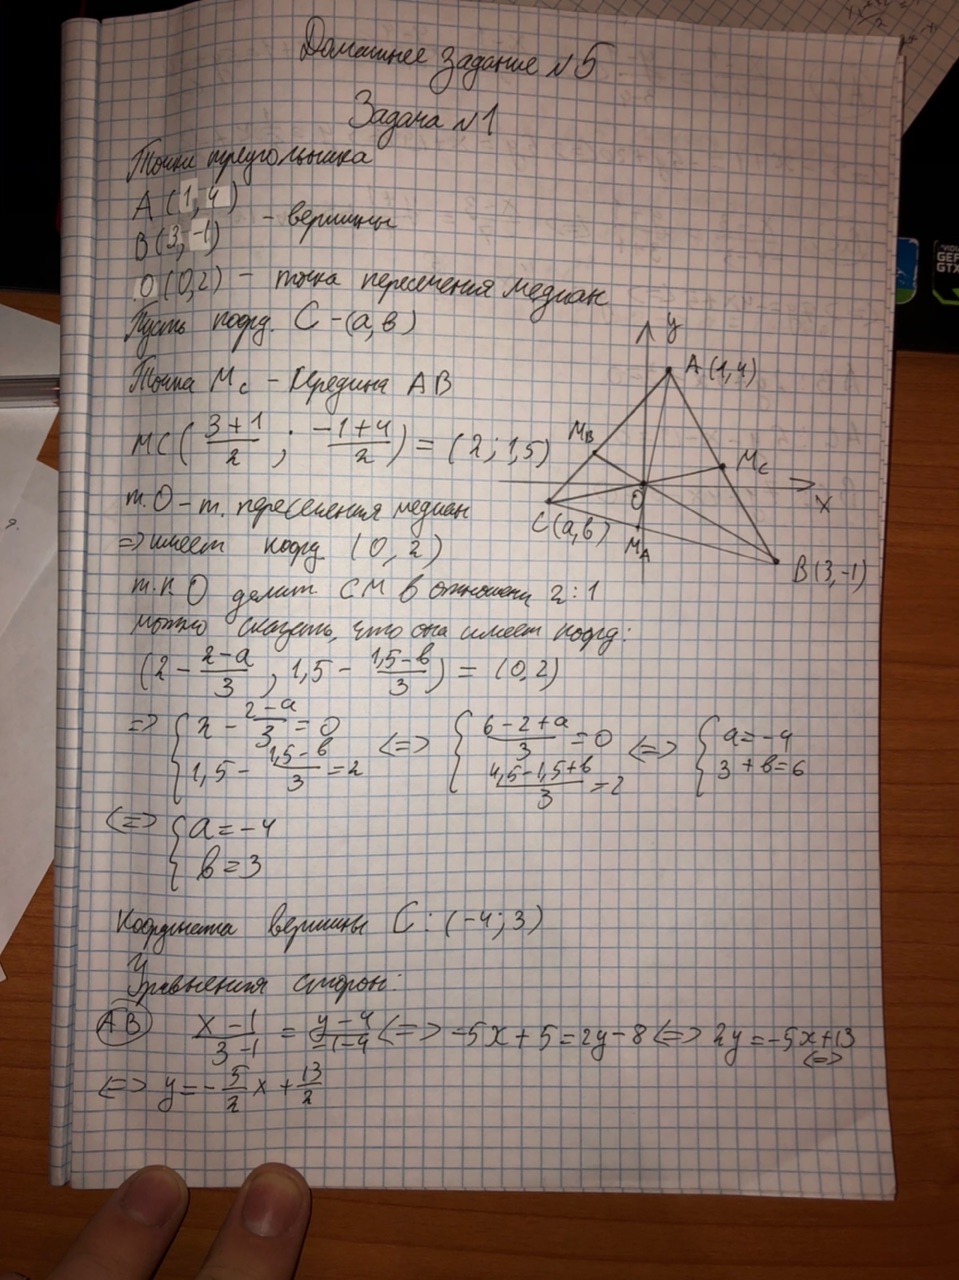 Домашнее задание №5
Задача №1
Точки треугольника
A (1, 4)
B (3, -1)
- вершины
O (0,2) - точка пересечения медиан
Пусть коорд. C - (a, в)
Точка Mc - середина AB
MC ( (3+1)/2 ; (-1+4)/2 ) = (2 ; 1,5)
т. O - т. пересечения медиан
=> имеет коорд. (0, 2)
т.к. O делит CM в отношении 2:1
можно сказать, что она имеет коорд:
(2 - (2-a)/3 , 1,5 - (1,5-в)/3) = (0,2)
=> { 2 - (2-a)/3 = 0 <=> { (6-2+a)/3 = 0 <=> { a = -4
1,5 - (1,5-в)/3 = 2 (4,5-1,5+в)/3 = 2 3 + в = 6
<=> { a = -4
в = 3
Координата вершины C: (-4; 3)
Уравнения сторон:
AB (x-1)/(3-1) = (y-4)/(-1-4) <=> -5x + 5 = 2y - 8 <=> 2y = -5x + 13 <=>
<=> y = -5/2 x + 13/2
y
A (1,4)
MB
Mc
O
x
C(a,в)
MA
B (3,-1)
GTX